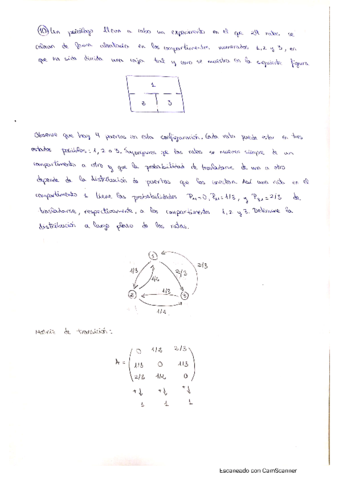 Un psicólogo lleva a cabo un experimento en el que 24 ratas se
colocan de forma aleatoria en los compartimentos numerados 1, 2 y 3, en
que ha sido dividida una caja tal y como se muestra en la siguiente figura
1
2 3
Observe que hay 4 puertas en esta configuración. Cada rata puede estar en tres
estados posibles: 1, 2 o 3. Supongamos que las ratas se mueven siempre de un
compartimento a otro y que la probabilidad de trasladarse de uno a otro
depende de la distribución de puertas que los conectan. Así una rata en el
compartimento 1 tiene las probabilidades P₁₁=0, P₂₁=1/3, y P₃₁=2/3 de
trasladarse, respectivamente, a los compartimentos 1, 2 y 3. Determine la
distribución a largo plazo de las ratas.
1
1/3 2/3 2/3
1/2
2 1/3 3
1/2
Matriz de transición:
0 1/2 2/3
A = 1/3 0 1/3
2/3 1/2 0
1 1 1
Escaneado con CamScanner